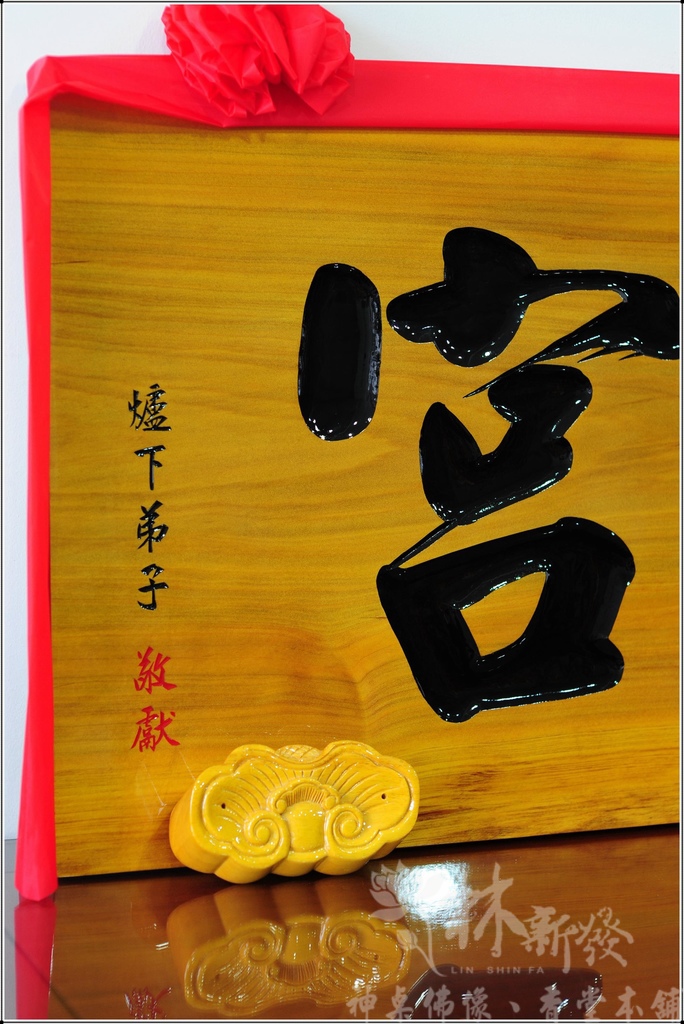 宮
爐下弟子 敬獻
林新發
LIN SHIN FA
神桌佛像、香堂本舖